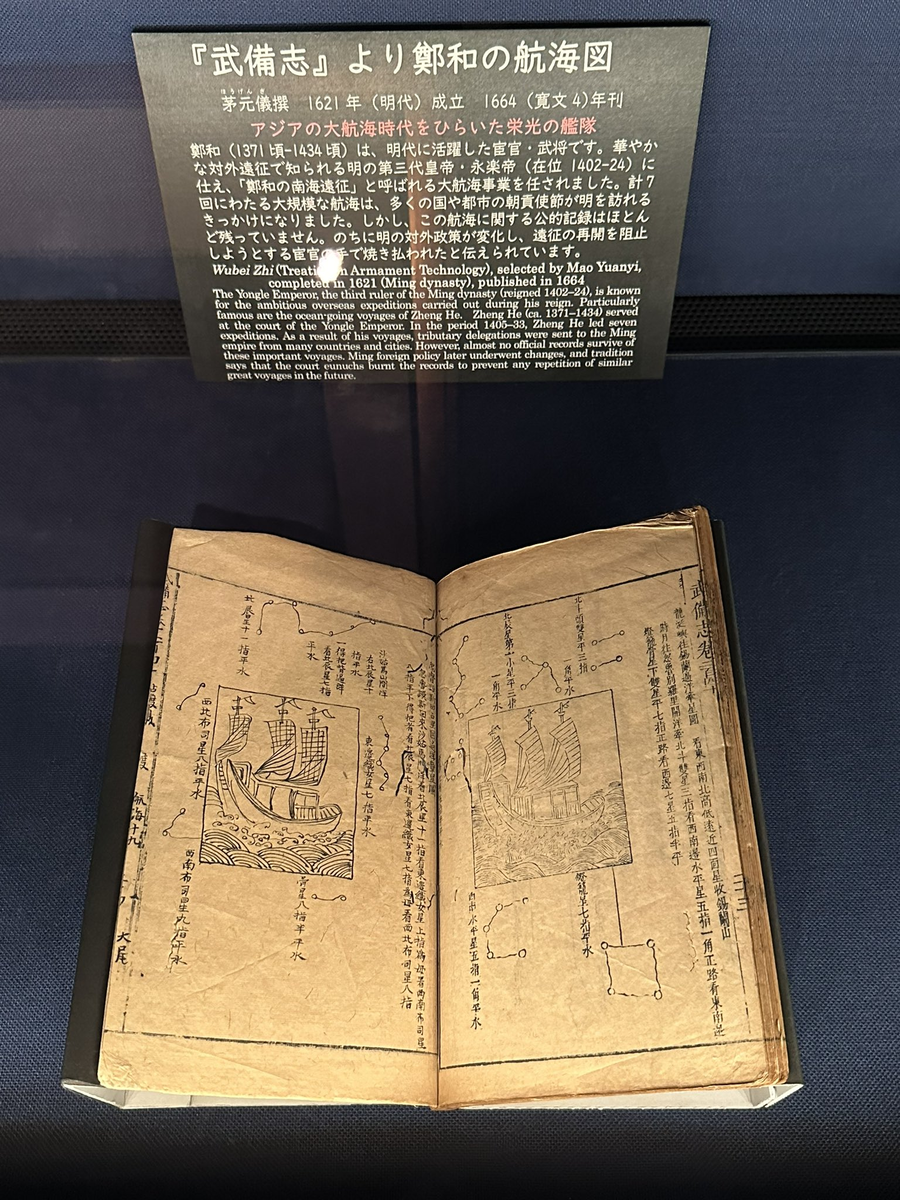 『武備志』より鄭和の航海図
茅元儀撰　1621年（明代）成立　1664（寛文4)年刊
アジアの大航海時代をひらいた栄光の艦隊
鄭和（1371頃-1434頃）は、明代に活躍した宦官・武将です。華やか
な対外遠征で知られる明の第三代皇帝・永楽帝（在位 1402-24）に
仕え、「鄭和の南海遠征」と呼ばれる大航海事業を任されました。計7
回にわたる大規模な航海は、多くの国や都市の朝貢使節が明を訪れる
きっかけになりました。しかし、この航海に関する公的記録はほとん
ど残っていません。のちに明の対外政策が変化し、遠征の再開を阻止
しようとする宦官の手で焼き払われたと伝えられています。
Wubei Zhi (Treatise on Armament Technology), selected by Mao Yuanyi,
completed in 1621 (Ming dynasty), published in 1664
The Yongle Emperor, the third ruler of the Ming dynasty (reigned 1402–24), is known
for the ambitious overseas expeditions carried out during his reign. Particularly
famous are the ocean-going voyages of Zheng He. Zheng He (ca. 1371–1434) served
at the court of the Yongle Emperor. In the period 1405–33, Zheng He led seven
expeditions. As a result of his voyages, tributary delegations were sent to the Ming
empire from many countries and cities. However, almost no official records survive of
these important voyages. Ming foreign policy later underwent changes, and tradition
says that the court eunuchs burnt the records to prevent any repetition of similar
great voyages in the future.
武備志卷二百四十
龍涎嶼往錫蘭過洋牽星圖　看東西南北高低遠近四面星收錫蘭山
時月往忽魯別羅里開洋牽北斗雙星三指看西南邊水平星五指一角正路看東南邊
燈籠骨星下雙星平七指正路看西邊七星五指半平
燈籠星七指平水
西南水平星五指一角平水
沙姑馬山開洋
看北辰星十一指看東邊織女星七指為母看西南布司星
看北辰星七指看東邊織女星七指為母看西北布司星八指
右北辰星十
指平水
看北辰星七指
平水
東邊織女星七指平水
北辰星十一指平水
骨星八指半平水
西北布司星八指平水
西南布司星九指平水
航海十九
大尾